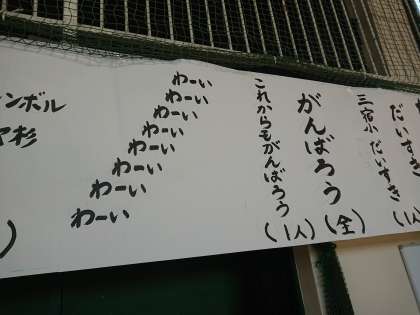 だいすき
三宿小 だいすき (1人
がんばろう (全)
これからもがんばろう (1人)
わーい
わーい
わーい
わーい
わーい
わーい
わーい
わーい
ンボル
杉
)